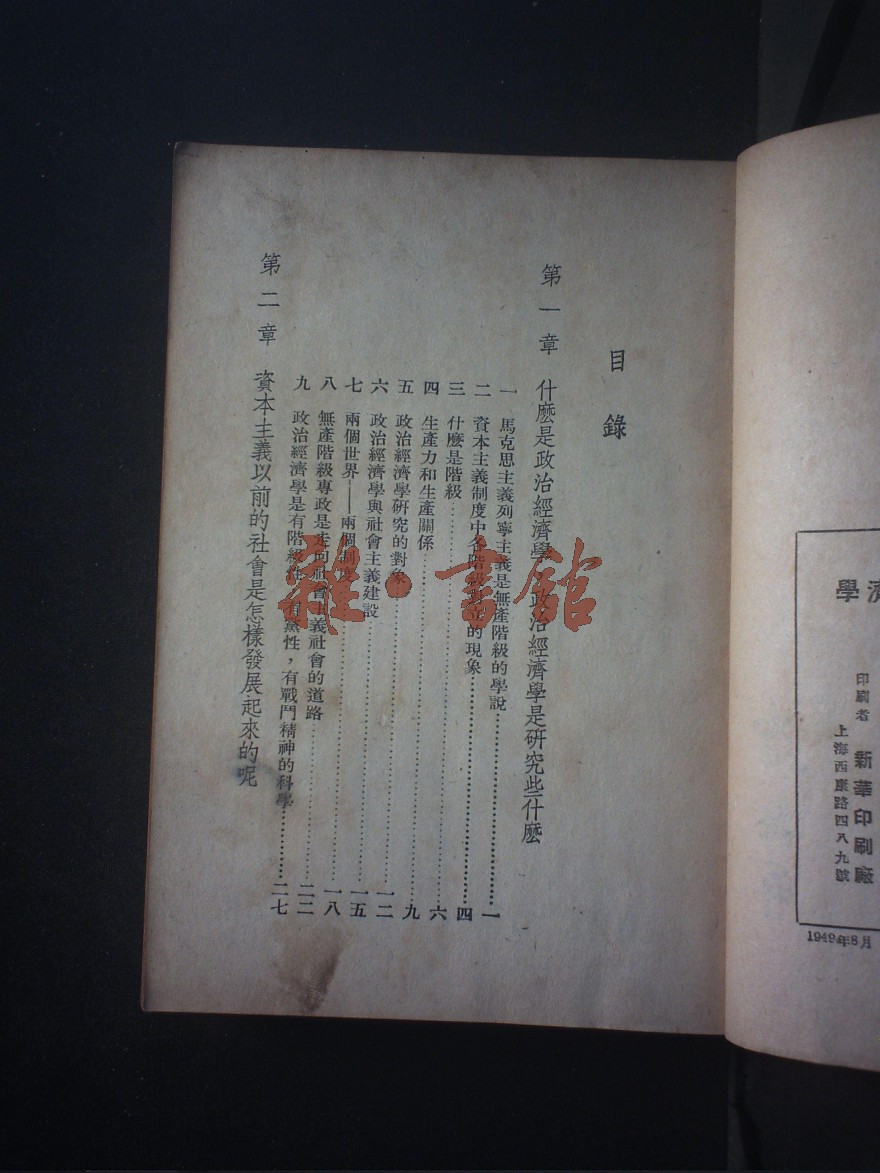 濟學
印刷者 新華印刷廠
上海西康路四八九號
1949年8月
目錄
第一章 什麽是政治經濟學 政治經濟學是研究些什麽
一 馬克思主義列寧主義是無產階級的學說……一
二 資本主義制度中各階級對立的現象……四
三 什麽是階級……六
四 生產力和生產關係……九
五 政治經濟學研究的對象……一二
六 政治經濟學與社會主義建設……一五
七 兩個世界——兩個制度……一八
八 無產階級專政是走向社會主義社會的道路……二二
九 政治經濟學是有階級性,有黨性,有戰鬥精神的科學……二七
第二章 資本主義以前的社會是怎樣發展起來的呢
雜·書館